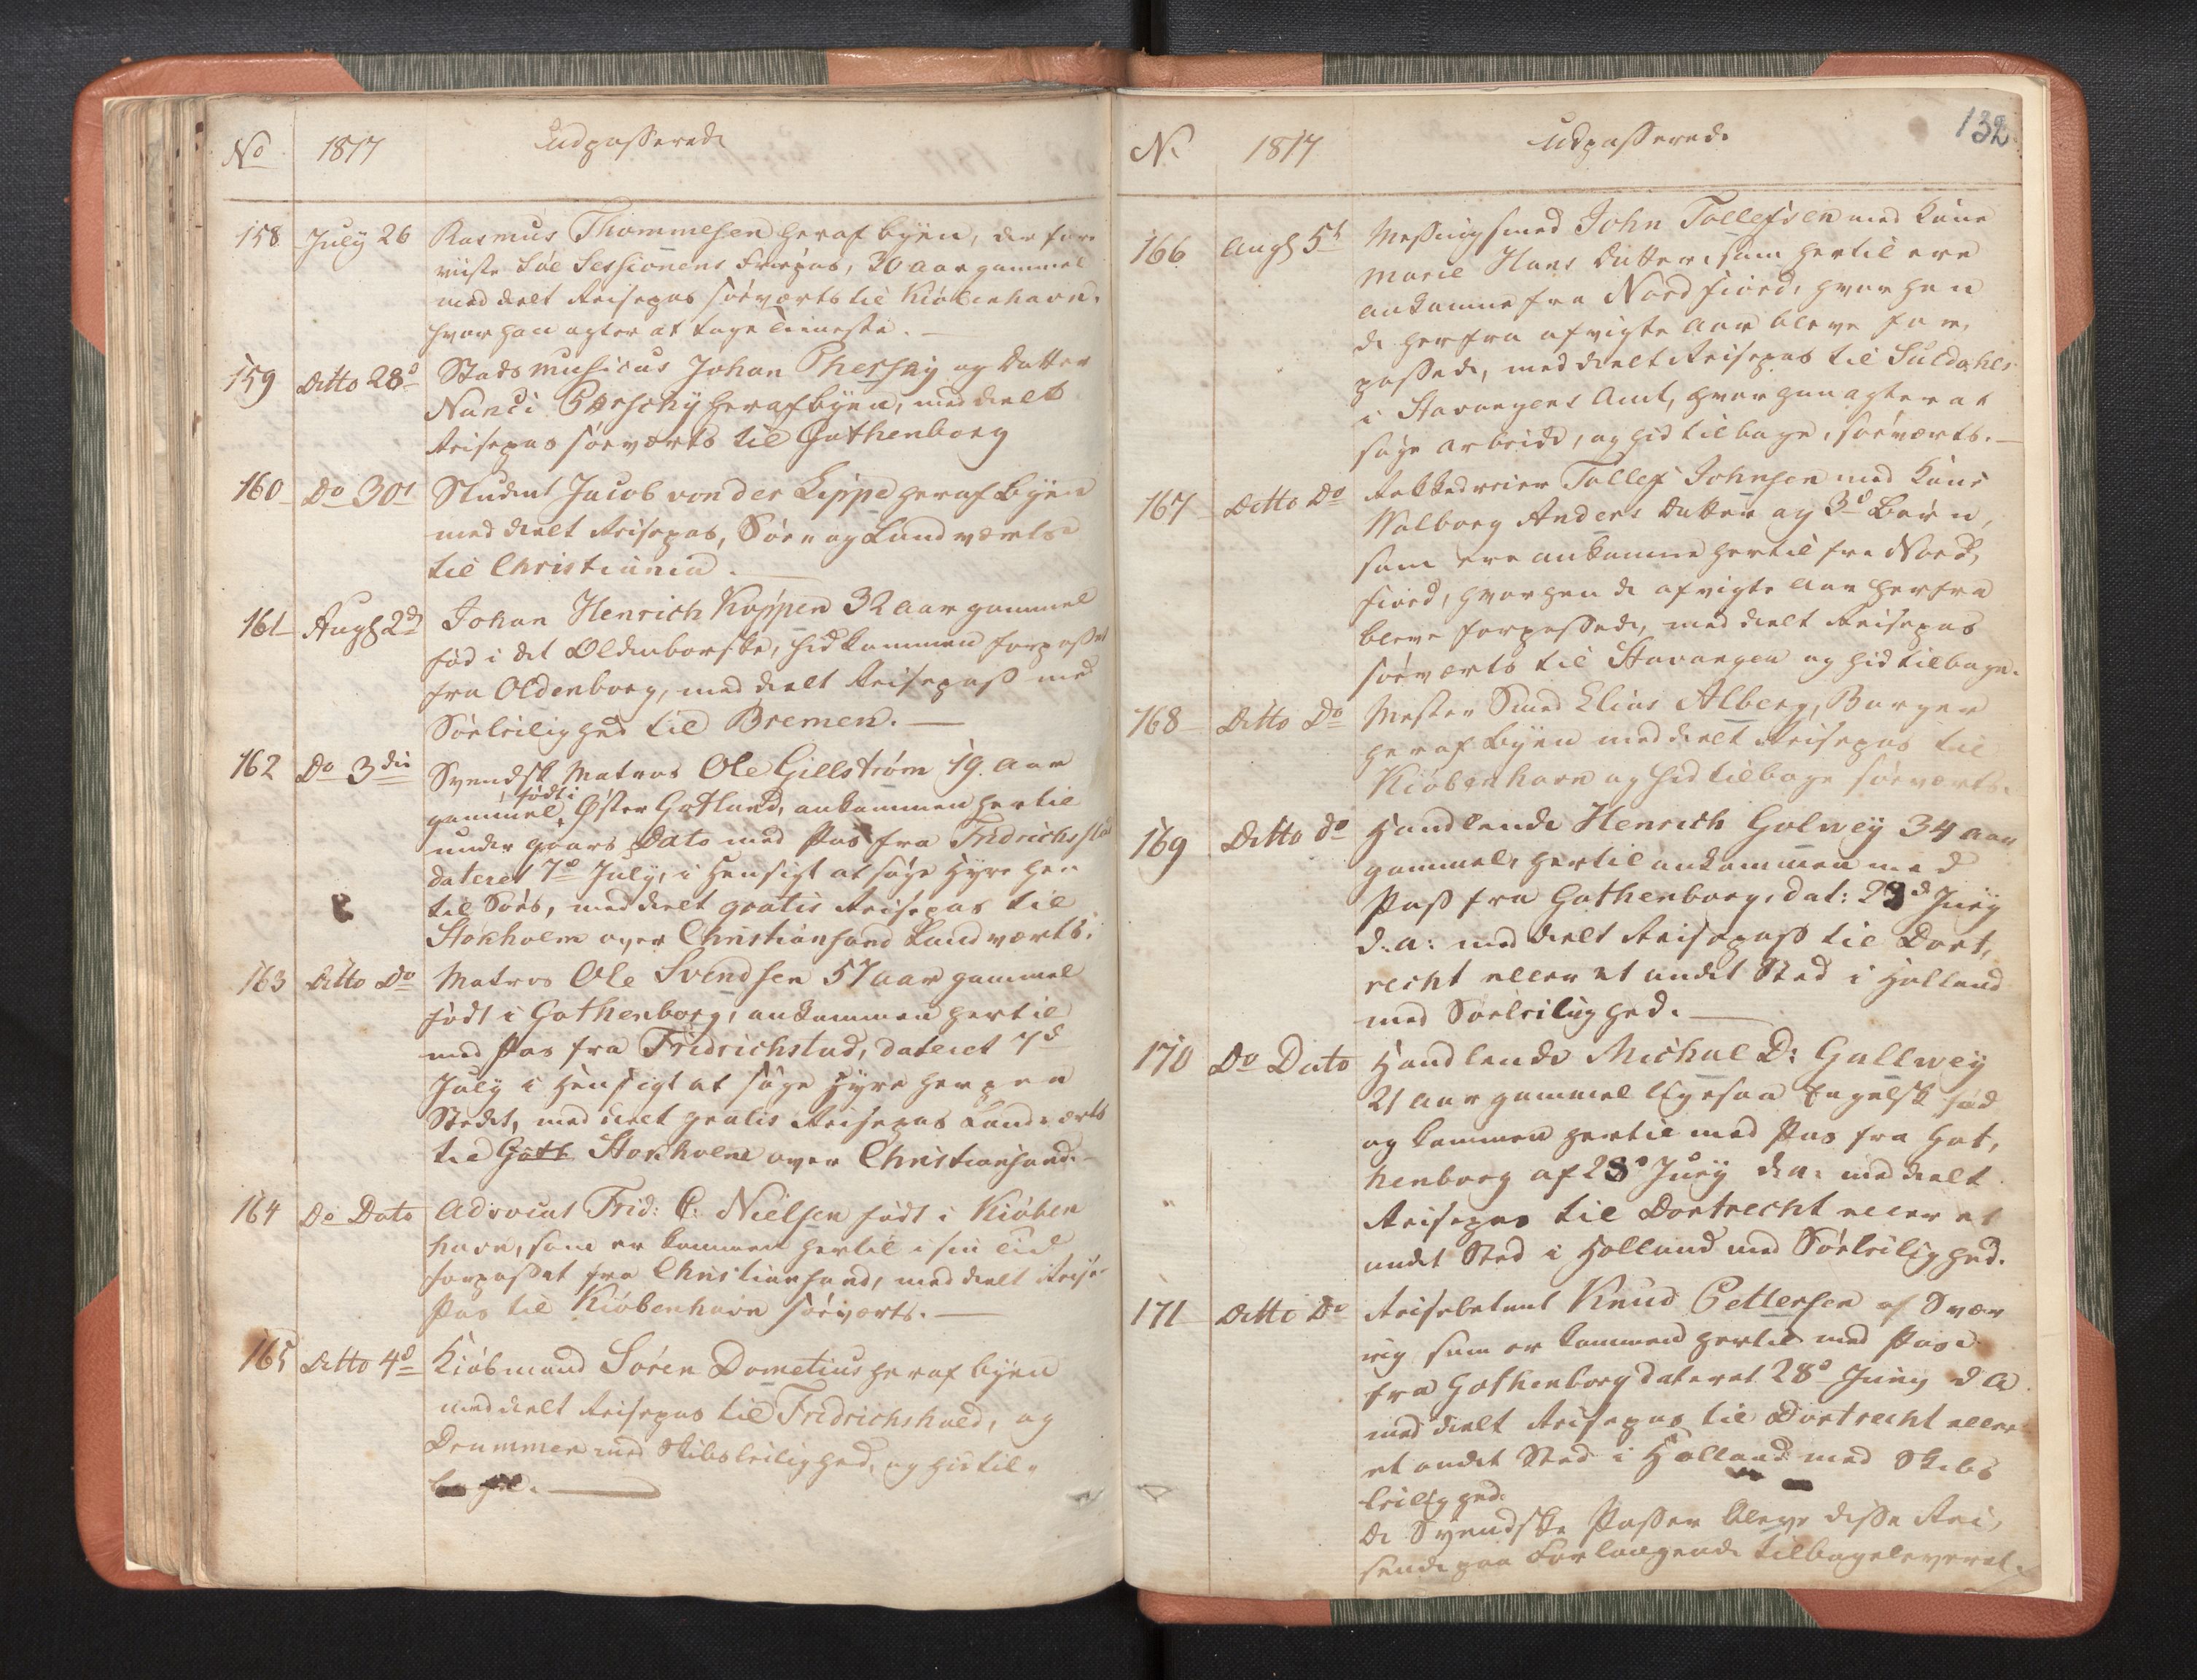 No 1817 Udpasserede
158 July 26 Rasmus Thommesen heraf byen, der fore
viiste Søe Sessionens Friepas, 30 aar gammel
meddeelt Reisepas søeværts til Kiöbenhavn,
hvor han agter at tage Tieneste. —
159 Ditto 28d Stads musicus Johan Phersky og Datter
Nanci Pærschÿ heraf byen, meddeelt
Reisepas søeværts til Gothenborg
160 Do 30t Student Jacob von der Lippe heraf byen
meddeelt Reisepas, Søe og Landværts
til Christiania. —
161 Augs 2d Johan Henrich Koppen 32 aar gammel
fød i det Oldenborske, hidkommen forpasset
fra Oldenborg, meddeelt Reisepass med
Søeleilighed til Bremen. —
162 Do 3die Svendsk Matros Ole Gillstrøm 19. aar
gammel, født i Øster Gotland, ankommen hertil
under gaars Dato med Pas fra Fridrichsstad
dateret 7d July, i Hensigt at søge Hyre her
til Søes, meddeelt gratis Reisepas til
Stokholm over Christiansand Landværts.
163 Ditto Do Matros Ole Svendsen 57 aar gammel
født i Gothenborg, ankommen hertil
med Pas fra Fridrichstad, dateret 7d
July i Hensigt at søge Hyre her paa
Stedet, meddeelt gratis Reisepas Landværts
til Goth Stokholm over Christiansand. —
164 Do Dato Advocat Frid: C: Nielsen født i Kiöben
havn, som er kommen hertil i sin Tid
forpasset fra Christiansand, meddeelt Reise
Pas til Kiöbenhavn søeværts. —
165 Ditto 4d Kiöbmand Sören Dometius heraf byen
meddeelt Reisepas til Fridrichshald, og
Drammen med Skibsleilighed, og hid til-
bage. —
N. 1817 Udpasserede 132
166 Augs 5t Messingsmed John Tollefsen med Kone
Marie Hans Datter, som hertil ere
ankomne fra Nordfiord, hvorhen
de herfra afvigte Aar bleve for,
passede, meddeelt Reisepas til Suldahls
i Stavangers Amt, hvor han agter at
søge arbeide, og hid tilbage, søeværts. —
167 Ditto Do Tollef Johnsen med Kone
Walborg Anders Datter og 3d Børn,
som ere ankomne hertil fra Nord,
fiord, hvorhen de afvigte Aar herfra
bleve forpassede, meddeelt Reisepas
søeværts til Stavanger og hid tilbage.
168 Ditto Do Mester Smed Elias Alberg, Borger
heraf Byen meddeelt Reisepas til
Kiöbenhavn og hid tilbage søeværts.
169 Ditto do Handlende Henrich Golwey 34 Aar
gammel, hertil ankommen med
Pass fra Gothenborg, dat: 28d Juny
d: a: meddeelt Reisepass til Dort,
recht eller et andet Sted i Holland
med Søeleilighed. —
170 Do Dato Handlende Michal D: Gallwey
21 Aar gammel ligesaa Engelsk fød
og kommen hertil med Pas fra Got,
henborg af 28d Juny d: a: meddeelt
Reisepas til Dortrecht eller et
andet Sted i Holland med Søeleilighed.
171 Ditto Do Reisebetient Knud Pettersen af Sver
rig som er kommen hertil med Pas
fra Gothenborg dateret 28d Juny d A
meddeelt Reisepas til Dortrecht eller
et andet Sted i Holland med Skibs
leilighed.
De Svendske Passer bleve disse Rei,
sende paa Forlangende tilbageleveret.